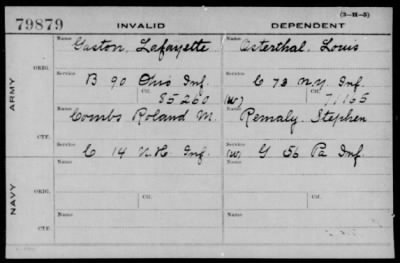 (3-H-5)
79879 INVALID DEPENDENT
ARMY
ORIG.
Name Gaston, Lafayette Name Osterthal, Louis
Service B 90 Ohio Inf. Service C 73 N.Y. Inf.
Ctf. 85260 (W) Ctf. 71165
CTF.
Name Combs Roland M. Name Remaly, Stephen
Service C 14 N.H. Inf. Service (W) G 56 Pa Inf.
NAVY
ORIG.
Ctf. Ctf.
Name Name
CTF.
Service Service